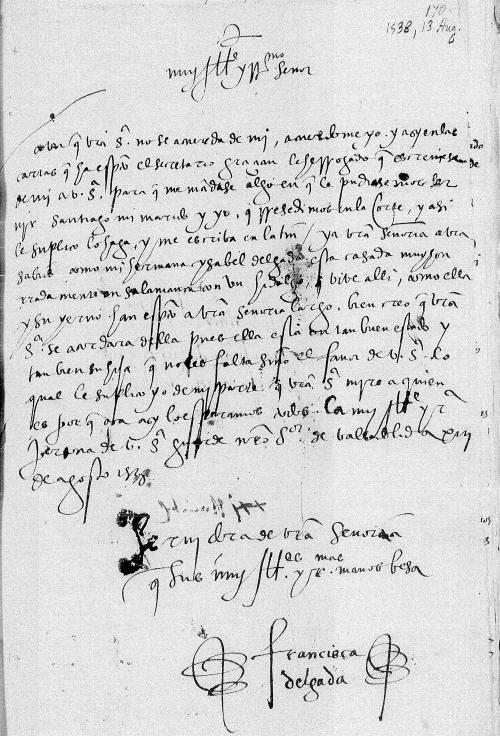 170
1538, 13 Aug.
muy Ille y Rmo
señor
aun q vra Sª. no se acuerda de mi, acuerdome yo. y asy en las
cartas q ha escrito el secretario gracian le he rogado q
de mi a v. Sª. para q me mãdase algo en q le pudiesemos ser
uir Santiago mi marido y yo, q Residimos en la Corte, y asi
le suplico lo haga, y me escriba en latin / ya vra Señoria abra
sabido como mi hermana ysabel delgada esta casada muy hon
rradamente en salamanca con un hidalgo q vive alli, como ella
y su yerno han escrito a vra señoria largo. bien creo q vra
Sª. se acordara della pues ella esta en tan buen estado y
tan bien su hija q no les falta sino el favor de v. Sª. lo
qual le suplico yo de mi parte q vra Sª mire a quien
es por q aca asy lo esperamos todos. La muy Ille y R
persona de v. Sª guarde nro Sor. de valladolid a xiii
de agosto 1538
Seruidora de vra Señoria
q sus muy Illes y R. manos besa
francisca
delgada